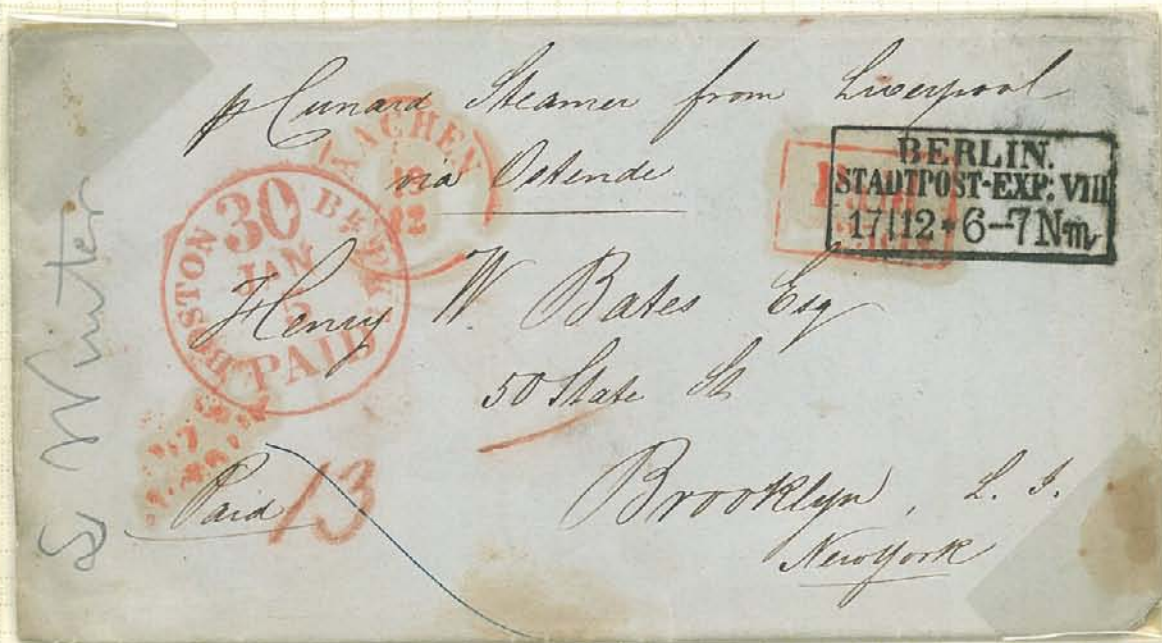 p Cunard Steamer from Liverpool
via Ostende
AACHEN
12
BERLIN.
STADTPOST-EXP: VIII
17|12 * 6-7 Nm
Paid
30
BOSTON Br. PKT
JAN
5
PAID
Henry W. Bates Esq
50 State St
Brooklyn, L. I.
New York
Paid
13
S Winter